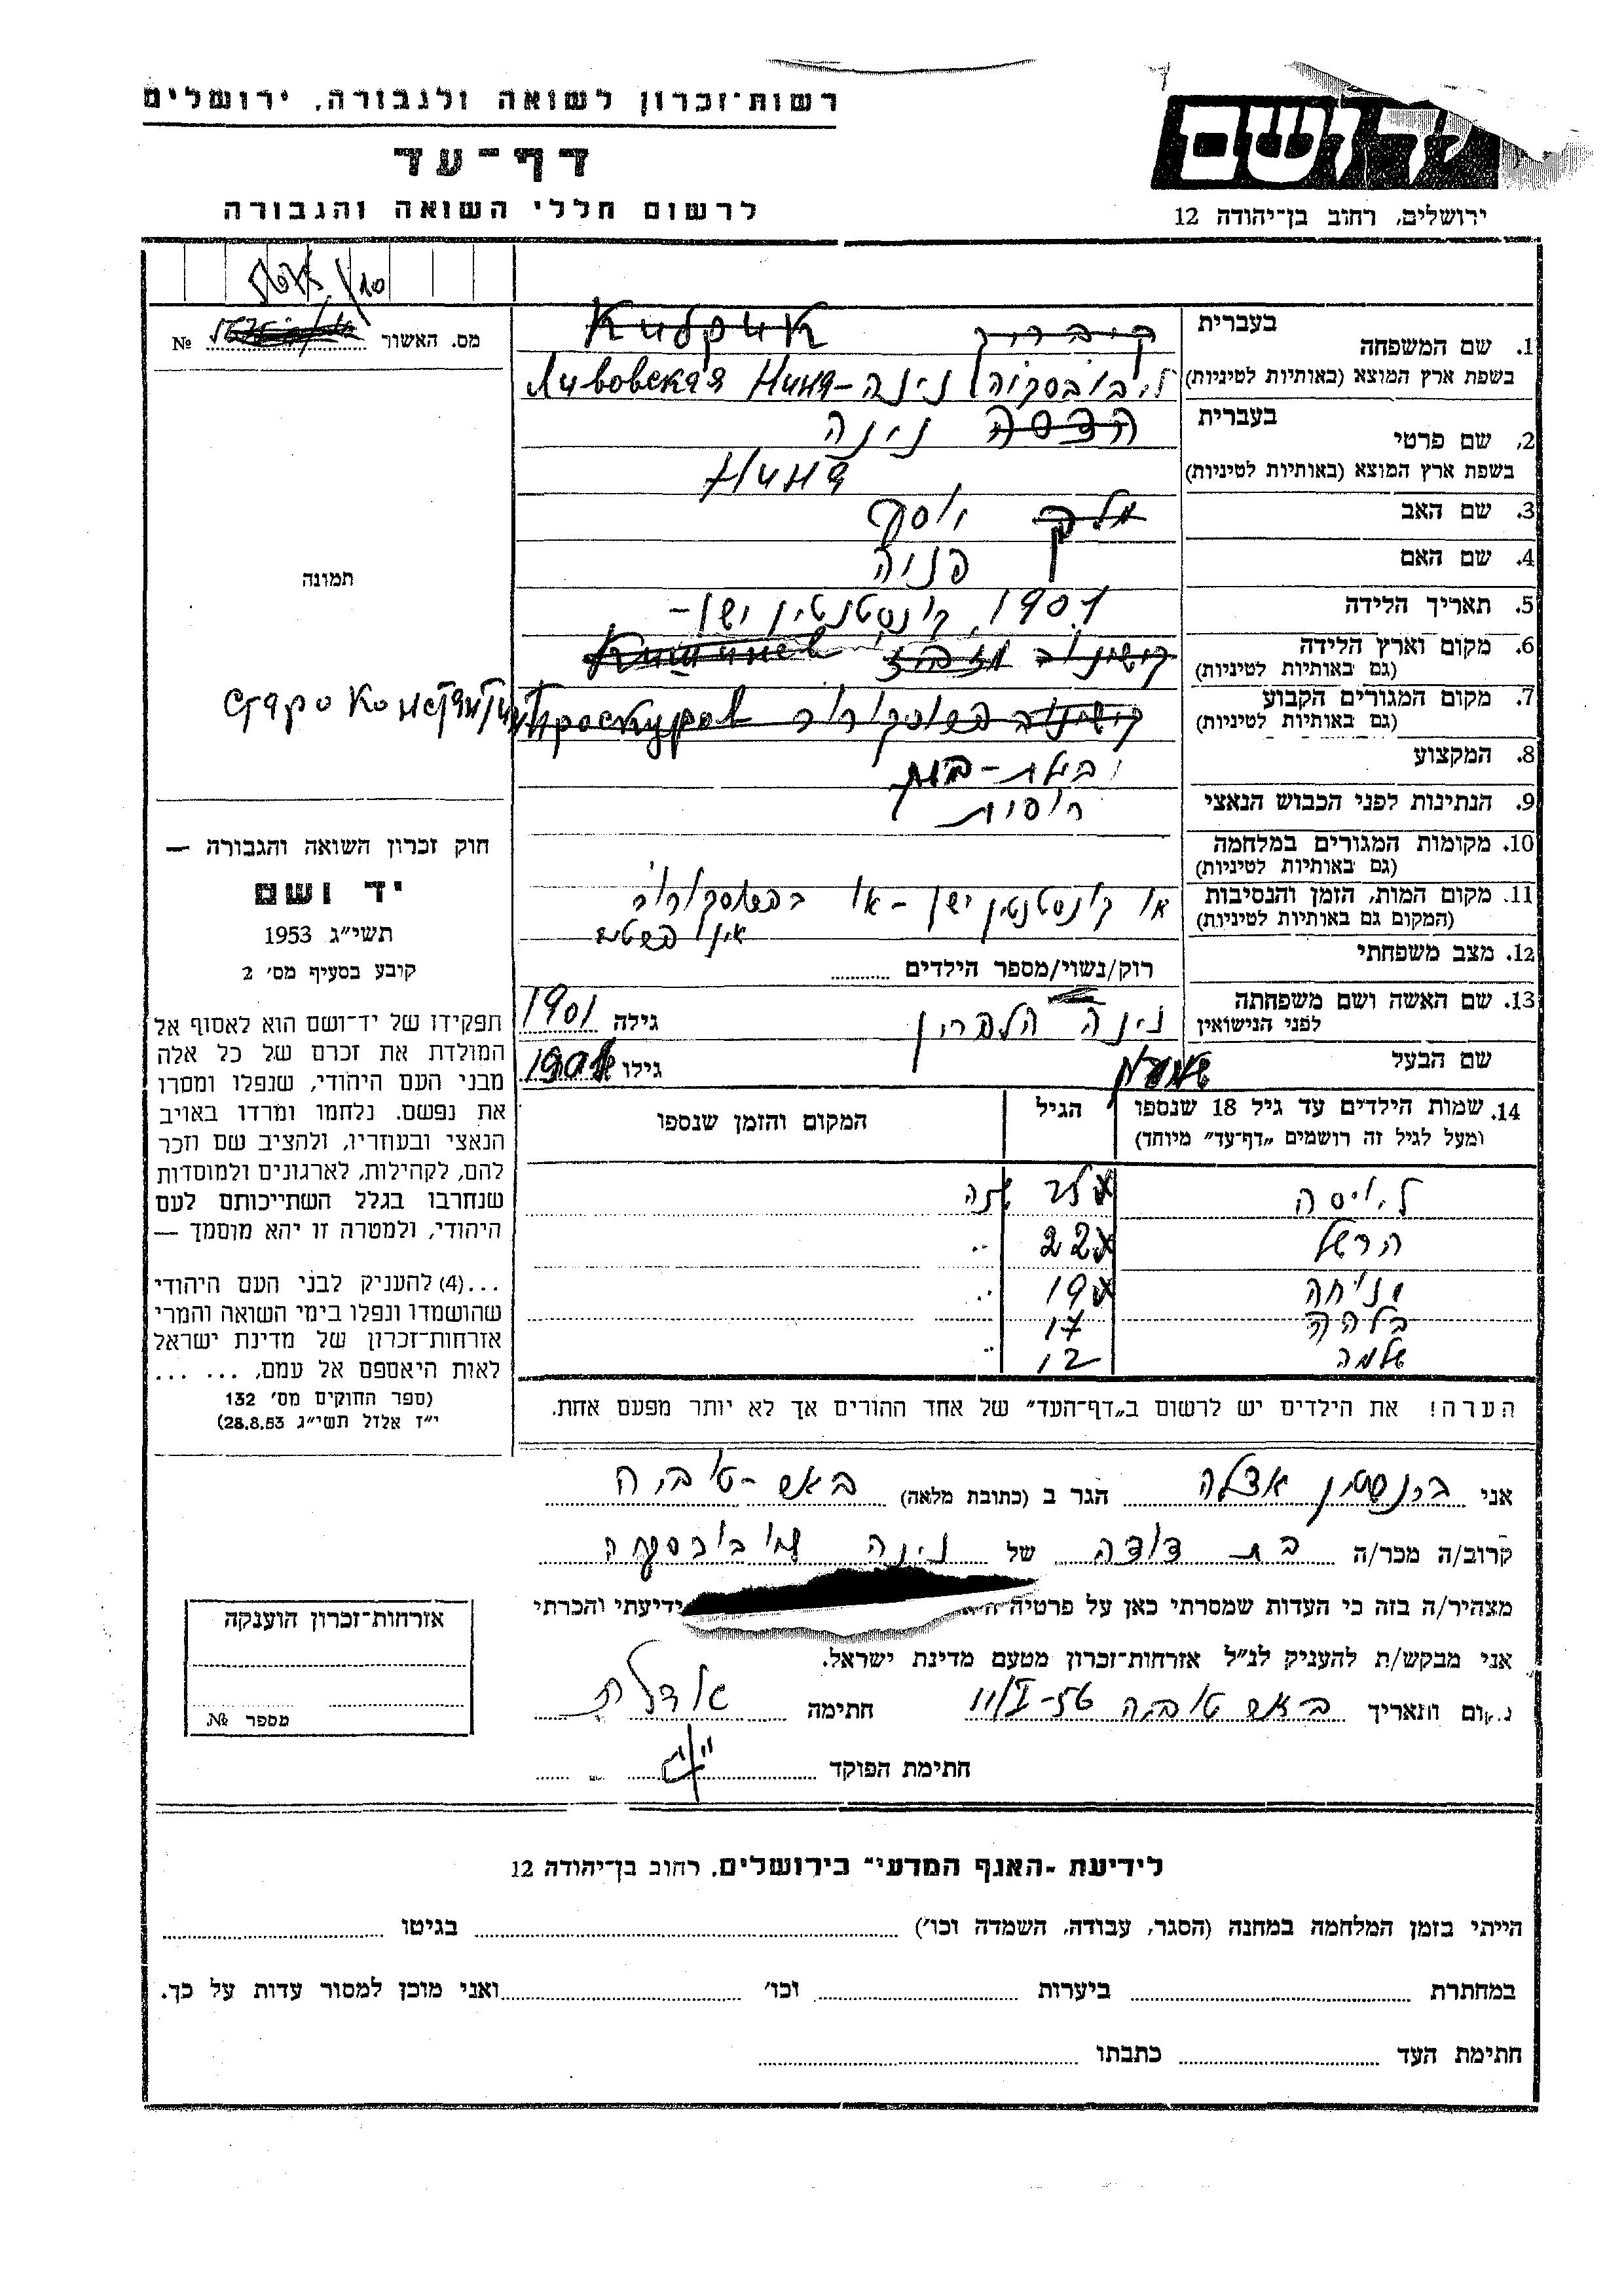 רשות־זכרון לשואה ולגבורה, ירושלים
דף־עד
לרשום חללי השואה והגבורה
ירושלים, רחוב בן־יהודה 12
מס. האשור №
תמונה
חוק זכרון השואה והגבורה —
יד ושם
תשי״ג 1953
קובע בסעיף מס׳ 2
תפקידו של יד־ושם הוא לאסוף אל
המולדת את זכרם של כל אלה
מבני העם היהודי, שנפלו ומסרו
את נפשם, נלחמו ומרדו באויב
הנאצי ובעוזריו, ולהציב שם וזכר
להם, לקהילות, לארגונים ולמוסדות
שנחרבו בגלל השתייכותם לעם
היהודי, ולמטרה זו יהא מוסמך —
...(4) להעניק לבני העם היהודי
שהושמדו ונפלו בימי השואה והמרי
אזרחות־זכרון של מדינת ישראל
לאות היאספם אל עמם, ... ...
(ספר החוקים מס׳ 132
י״ז אלול תשי״ג 28.8.53)
בעברית
1. שם המשפחה
קיבריק
בשפת ארץ המוצא (באותיות לטיניות)
ליבובסקיה נינה - Ливовская Нина
בעברית
2. שם פרטי
הדסה נינה
בשפת ארץ המוצא (באותיות לטיניות)
Нина
3. שם האב
יוסף
4. שם האם
פניה
5. תאריך הלידה
1901 קונסטנטין ישן -
6. מקום וארץ הלידה
(גם באותיות לטיניות)
קישינוב Кишинев
7. מקום המגורים הקבוע
(גם באותיות לטיניות)
קישינוב פרוסקורוב Проскуров
Старо Константин
8. המקצוע
9. הנתינות לפני הכבוש הנאצי
רוסית
10. מקומות המגורים במלחמה
(גם באותיות לטיניות)
11. מקום המות, הזמן והנסיבות
(המקום גם באותיות לטיניות)
או קונסטנטין ישן - או בפרוסקורוב
12. מצב משפחתי
רוק/נשוי/מספר הילדים
13. שם האשה ושם משפחתה
לפני הנישואין
נינה הלפרין גילה 1901
שם הבעל
גילו
14. שמות הילדים עד גיל 18 שנספו
(מעל לגיל זה רושמים „דף־עד״ מיוחד)
הגיל
המקום והזמן שנספו
שנה
הרשל 22 "
19 "
17
שלמה 12 "
הערה! את הילדים יש לרשום ב„דף־העד״ של אחד ההורים אך לא יותר מפעם אחת.
אני ברנשטין אדלה הגר ב (כתובת מלאה) באר-טוביה
קרוב/ה מכר/ה בת דודה של נינה
מצהיר/ה בזה כי העדות שמסרתי כאן על פרטיה ידיעתי והכרתי
אני מבקש/ת להעניק לנ״ל אזרחות־זכרון מטעם מדינת ישראל.
והתאריך באר טוביה 11/I-56 חתימה
חתימת הפוקד
אזרחות־זכרון הוענקה
מספר №
לידיעת ״האגף המדעי״ בירושלים, רחוב בן־יהודה 12
הייתי בזמן המלחמה במחנה (הסגר, עבודה, השמדה וכו׳) בגיטו
במחתרת ביערות וכו׳ ואני מוכן למסור עדות על כך.
חתימת העד כתבתו